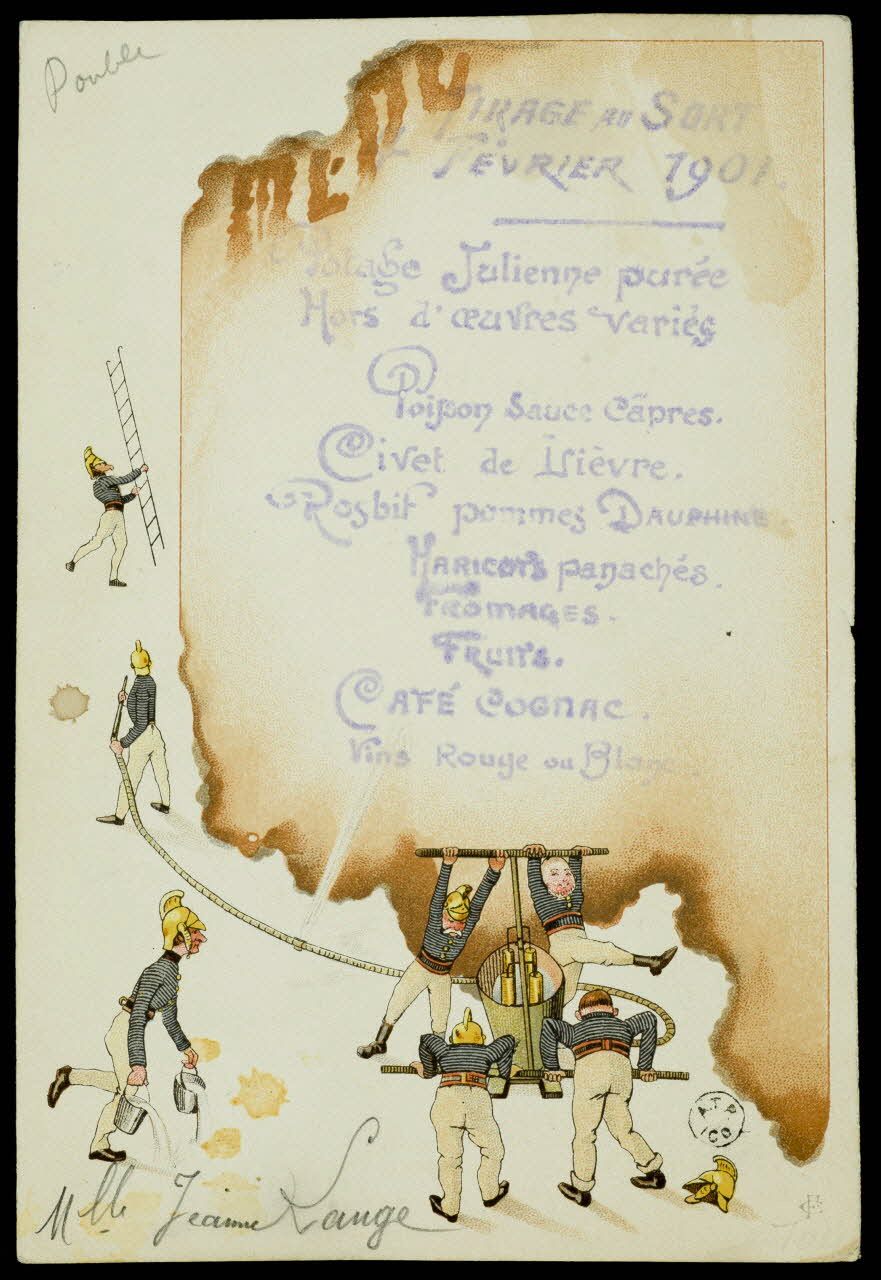 Double
MENU
TIRAGE AU SORT
FÉVRIER 1901.
Potage Julienne purée
Hors d'œuvres variés
Poisson Sauce Câpres.
Civet de Lièvre.
Rosbif pommes DAUPHINE.
HARICOTS panachés.
FROMAGES.
FRUITS.
CAFÉ COGNAC.
Vins Rouge ou Blanc
Mlle Jeanne Lange